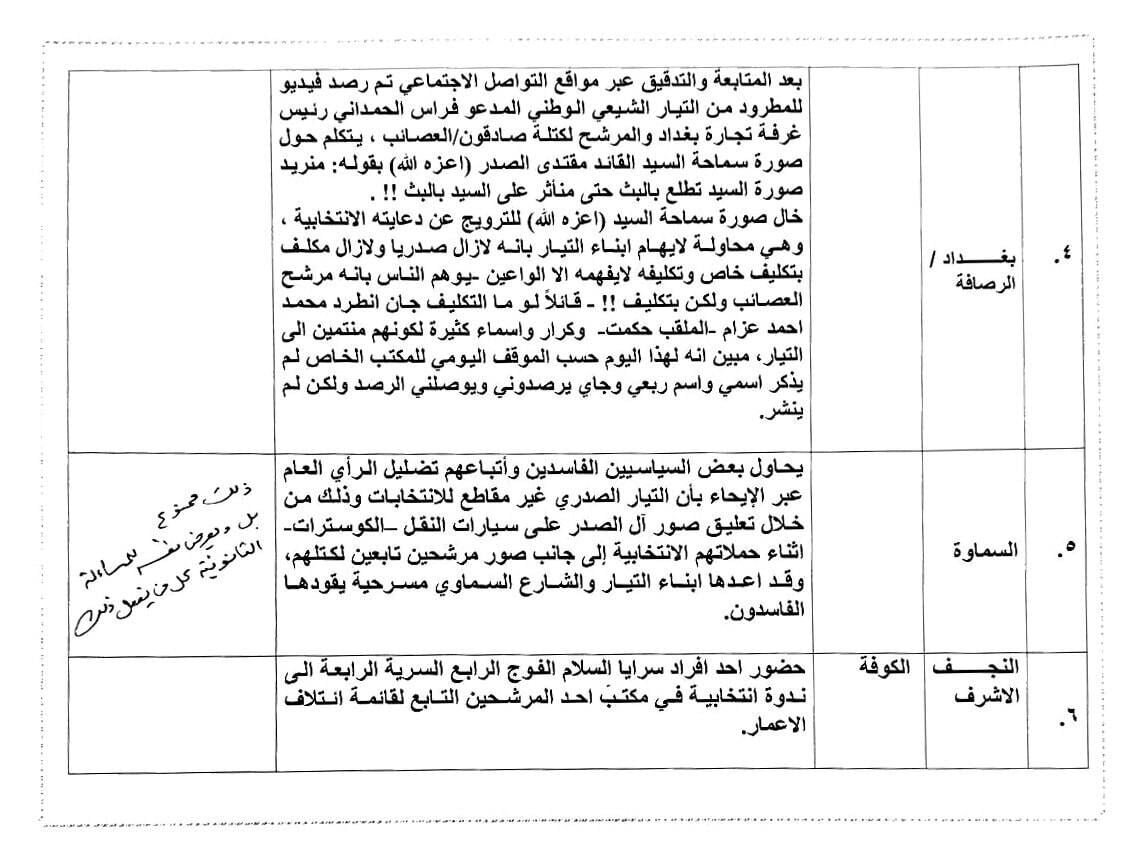 ٤.
بغداد /
الرصافة
بعد المتابعة والتدقيق عبر مواقع التواصل الاجتماعي تم رصد فيديو
للمطرود من التيار الشيعي الوطني المدعو فراس الحمداني رئيس
غرفة تجارة بغداد والمرشح لكتلة صادقون/العصائب ، يتكلم حول
صورة سماحة السيد القائد مقتدى الصدر (اعزه الله) بقوله: منريد
صورة السيد تطلع بالبث حتى منأثر على السيد بالبث !! .
خال صورة سماحة السيد (اعزه الله) للترويج عن دعايته الانتخابية ،
وهي محاولة لايهام ابناء التيار بانه لازال صدريا ولازال مكلف
بتكليف خاص وتكليفه لايفهمه الا الواعين -يوهم الناس بانه مرشح
العصائب ولكن بتكليف !! - قائلاً لو ما التكليف جان انطرد محمد
احمد عزام -الملقب حكمت- وكرار واسماء كثيرة لكونهم منتمين الى
التيار، مبين انه لهذا اليوم حسب الموقف اليومي للمكتب الخاص لم
يذكر اسمي واسم ربعي وجاي يرصدوني ويوصلني الرصد ولكن لم
ينشر.
٥.
السماوة
يحاول بعض السياسيين الفاسدين وأتباعهم تضليل الرأي العام
عبر الإيحاء بأن التيار الصدري غير مقاطع للانتخابات وذلك من
خلال تعليق صور آل الصدر على سيارات النقل -الكوسترات-
اثناء حملاتهم الانتخابية إلى جانب صور مرشحين تابعين لكتلهم،
وقد اعدها ابناء التيار والشارع السماوي مسرحية يقودها
الفاسدون.
ذلك ممنوع
بل ويعرض نفسه للمساءلة
القانونية كل من يفعل ذلك
٦.
النجف
الاشرف
الكوفة
حضور احد افراد سرايا السلام الفوج الرابع السرية الرابعة الى
ندوة انتخابية في مكتب احد المرشحين التابع لقائمة ائتلاف
الاعمار.